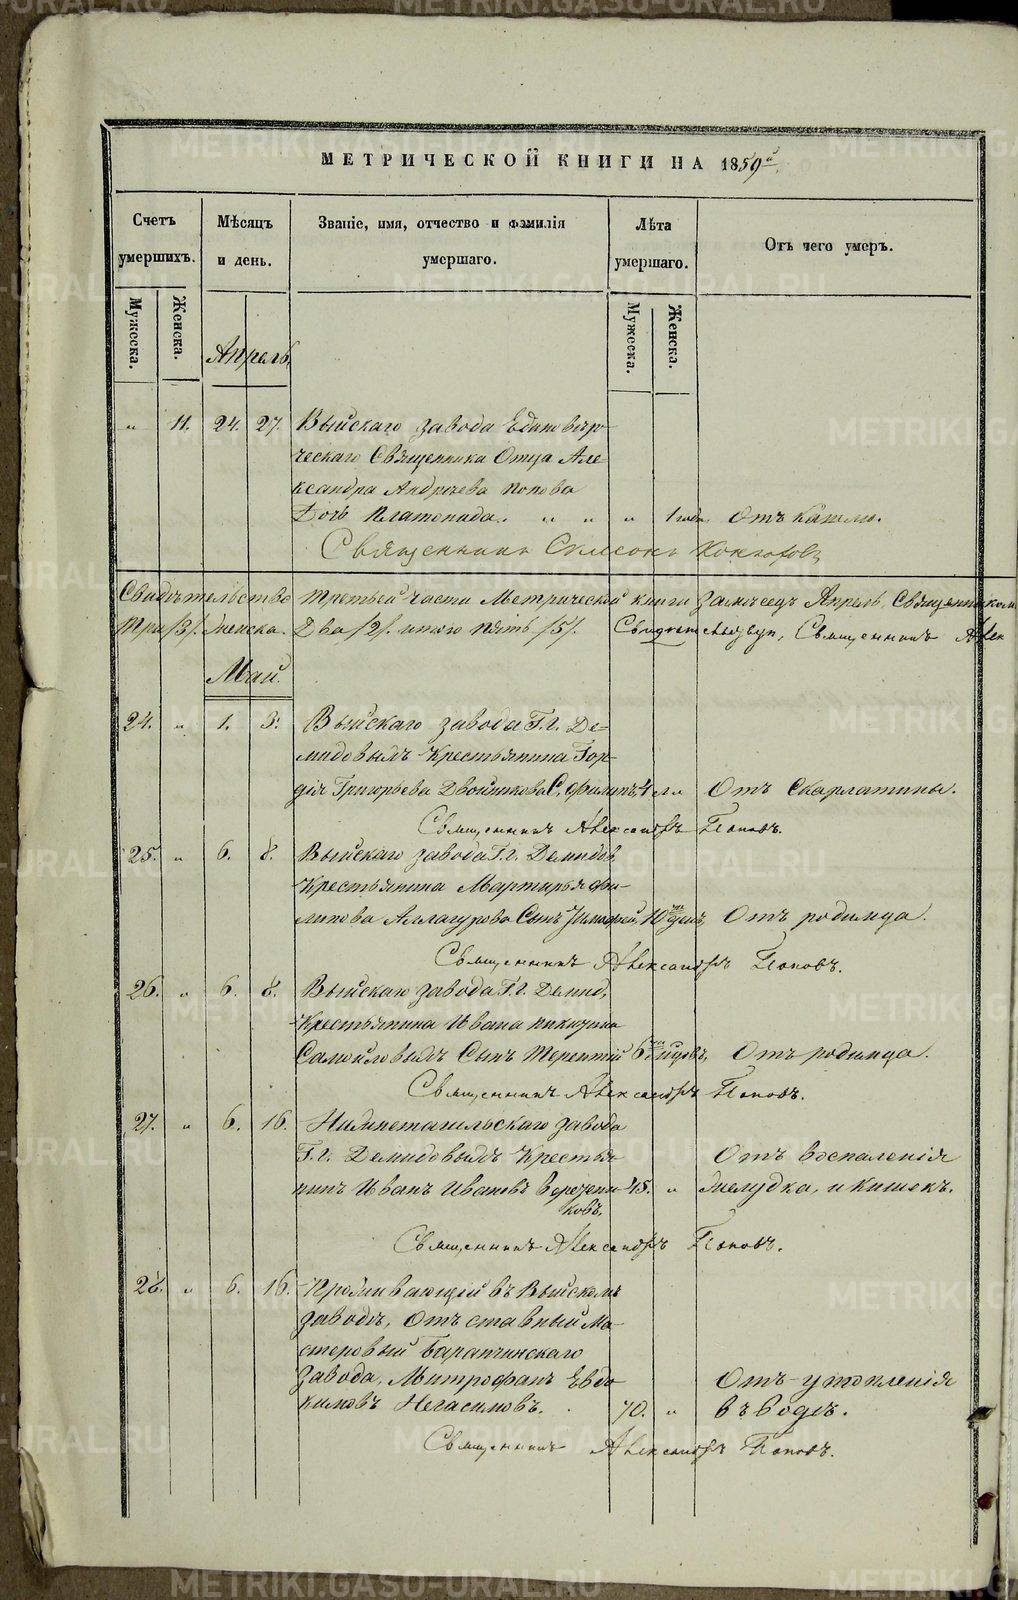 МЕТРИЧЕСКОЙ КНИГИ НА 1859й
Счетъ умершихъ.
Мѣсяцъ и день.
Званіе, имя, отчество и фамилія умершаго.
Лѣта умершаго.
Отъ чего умеръ.
Мужеска.
Женска.
Мужеска.
Женска.
Апрель,
„ 11. 24. 27. Выйскаго завода Единовѣр-
ческаго Священника Отца Але-
ксандра Андреева Попова
Дочь Платонида. „ „ „ 1 года, Отъ кашлю.
Священникъ
Свидѣтельство третьей части Метрической книги за месецъ Апрель, Священникомъ
Три /3/. женска. Два /2/. итого пять /5/. Священникъ Алек
Май.
24. „ 1. 3. Выйскаго завода Г.г. Де-
мидовыхъ Крестьянина Гор-
дія Григорьева Двойникова С. Филипъ, 4 Отъ Скарлатины.
Священникъ Александръ Поповъ.
25. „ 6. 8. Выйскаго завода Г.г. Демидов,
Крестьянина Мартирья Фи-
липова Сынъ Тимофей, 10 Отъ родимца.
Священникъ Александръ Поповъ.
26. „ 6. 8. Выйскаго завода Г.г. Демид,
Крестьянина Ивана Никитина
Самойловыхъ Сынъ Терентій 6 Отъ родимца.
Священникъ Александръ Поповъ.
27. „ 6. 16. Нижнетагильскаго завода
Г.г. Демидовыхъ Крестья- Отъ воспаленія
нинъ Иванъ Ивановъ Верезени- 45. „ желудка, и кишекъ.
ковъ,
Священникъ Александръ Поповъ.
28. „ 6. 16. Проживающій въ Выйскомъ
заводѣ, Отъставный ма-
стеровый Баранчинскаго
завода, Митрофанъ Евдо- Отъ утопленія
кимовъ Негасимовъ. 70. „ въ водѣ.
Священникъ Александръ Поповъ.
METRIKI.GASO-URAL.RU